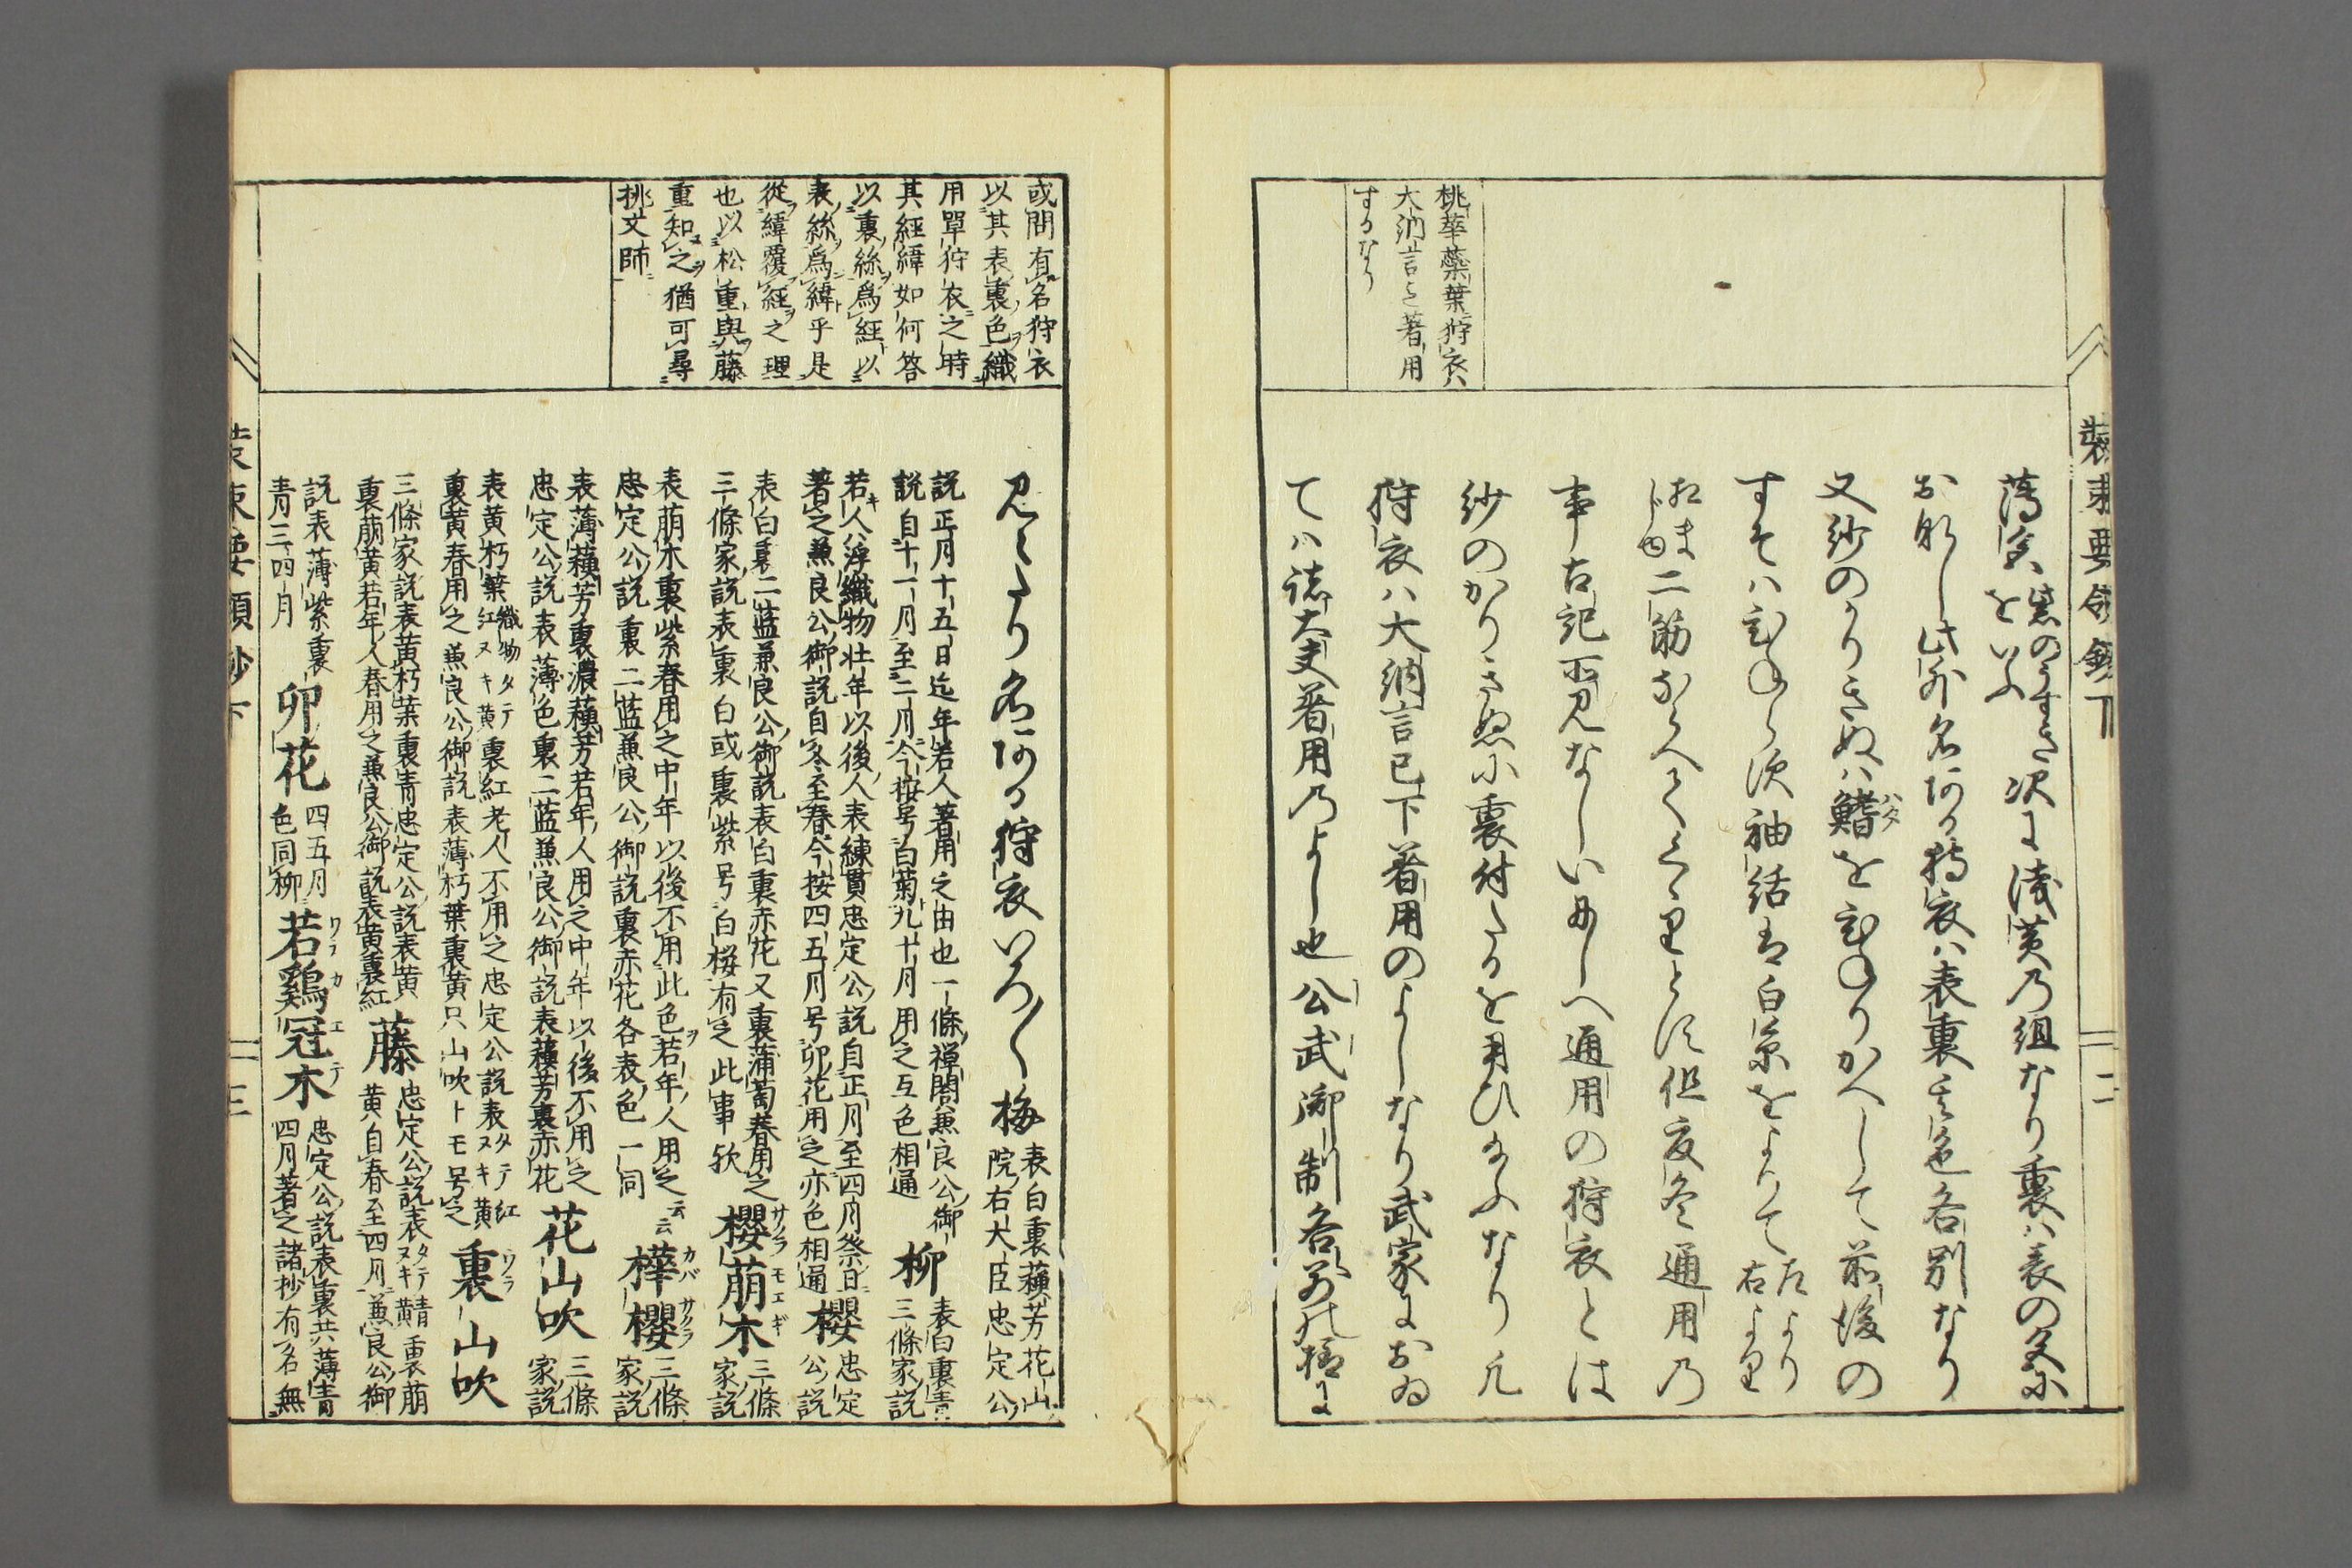 桃華蘂葉狩衣ハ
大納言已下著用
するなり
薄色ハ紫のうすき
をいふ
次に浅黄乃組なり裏ハ表の文に
おなし此外名ある狩衣ハ表裏其色各別なり
又紗のかりきぬハ鰭をひねりかへして前後の
すそハひねらす袖括は白糸をよりて左より
右より
二筋ならへてくゝりとす但夏冬通用乃
事古記所見なしいにしへ通用の狩衣とは
紗のかりきぬに裏付たるを用ひ給ふなり凡
狩衣ハ大納言已下著用のよしなり武家におゐ
てハ諸大夫著用乃よし也公武御制各別の
或問有名狩衣
以其表裏色織
用單狩衣之時
其經緯如何答
以裏絲爲經以
表絲爲緯乎是
從緯覆經之理
也以松重與藤
重知之猶可尋
挑文師
見えたり名ある狩衣いろ〳〵梅
表白裏蘓芳花山
院右大臣忠定公
説正月十五日迄年若人著用之由也一條禅閤兼良公御
説自十一月至二月今按号白菊九十月用之互色相通
柳
表白裏青
三條家説
若人ハ浮織物壮年以後人表練貫忠定公説自正月至四月祭日
著之兼良公御説自冬至春今按四五月号卯花用之亦色相通
櫻
忠定
公説
表白裏二藍兼良公御説表白裏赤花又裏蒲萄春用之
三條家説表裏白或裏紫号白桜有之此事欤
櫻萠木
三條
家説
表萠木裏紫春用之中年以後不用此色若年人用之云云
忠定公説裏二藍兼良公御説裏赤花各表色一同
樺櫻
三條
家説
表薄蘓芳裏濃蘓芳若年人用之中年以後不用之
忠定公説表薄色裏二藍兼良公御説表蘓芳裏赤花
花山吹
三條
家説
表黄朽葉織物タテ紅ヌキ黄裏紅老人不用之忠定公説表タテ紅ヌキ黄
裏黄春用之兼良公御説表薄朽葉裏黄只山吹トモ号之
裏山吹
三條家説表黄朽葉裏青忠定公説表黄
裏萠黄若年人春用之兼良公御説表黄裏紅
藤
忠定公説表タテ青ヌキ黄裏萠
黄自春至四月兼良公御
説表薄紫裏
青三四月
卯花
四五月
色同柳
若鷄冠木
忠定公説表裏共薄青
四月著之諸抄有名無